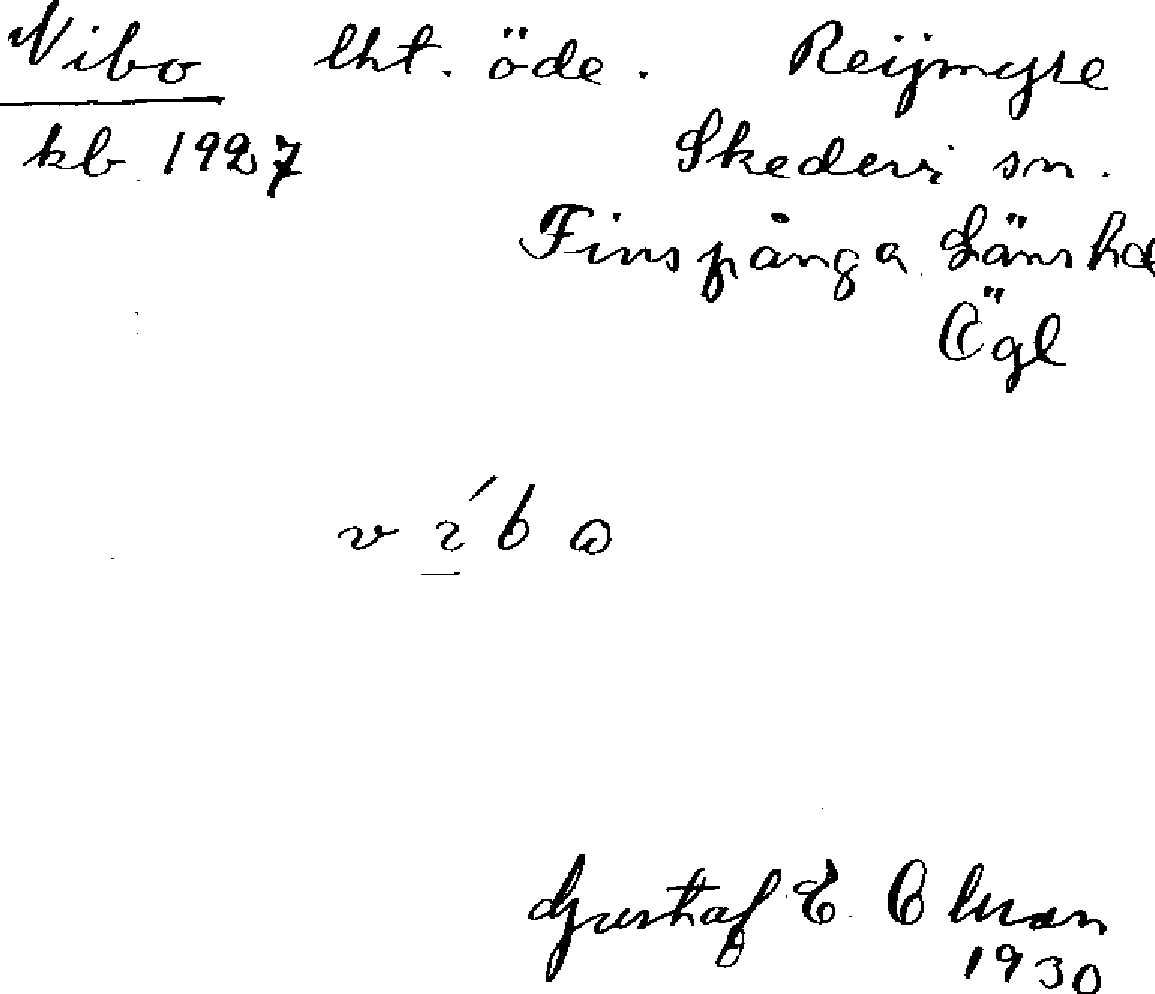 Vibo lht. öde. Reijmyre
kb 1927 Skedevi sn.
Finspånga Länshd
Ögl
v i ́ b ω
Gustaf E. Olsson
1930